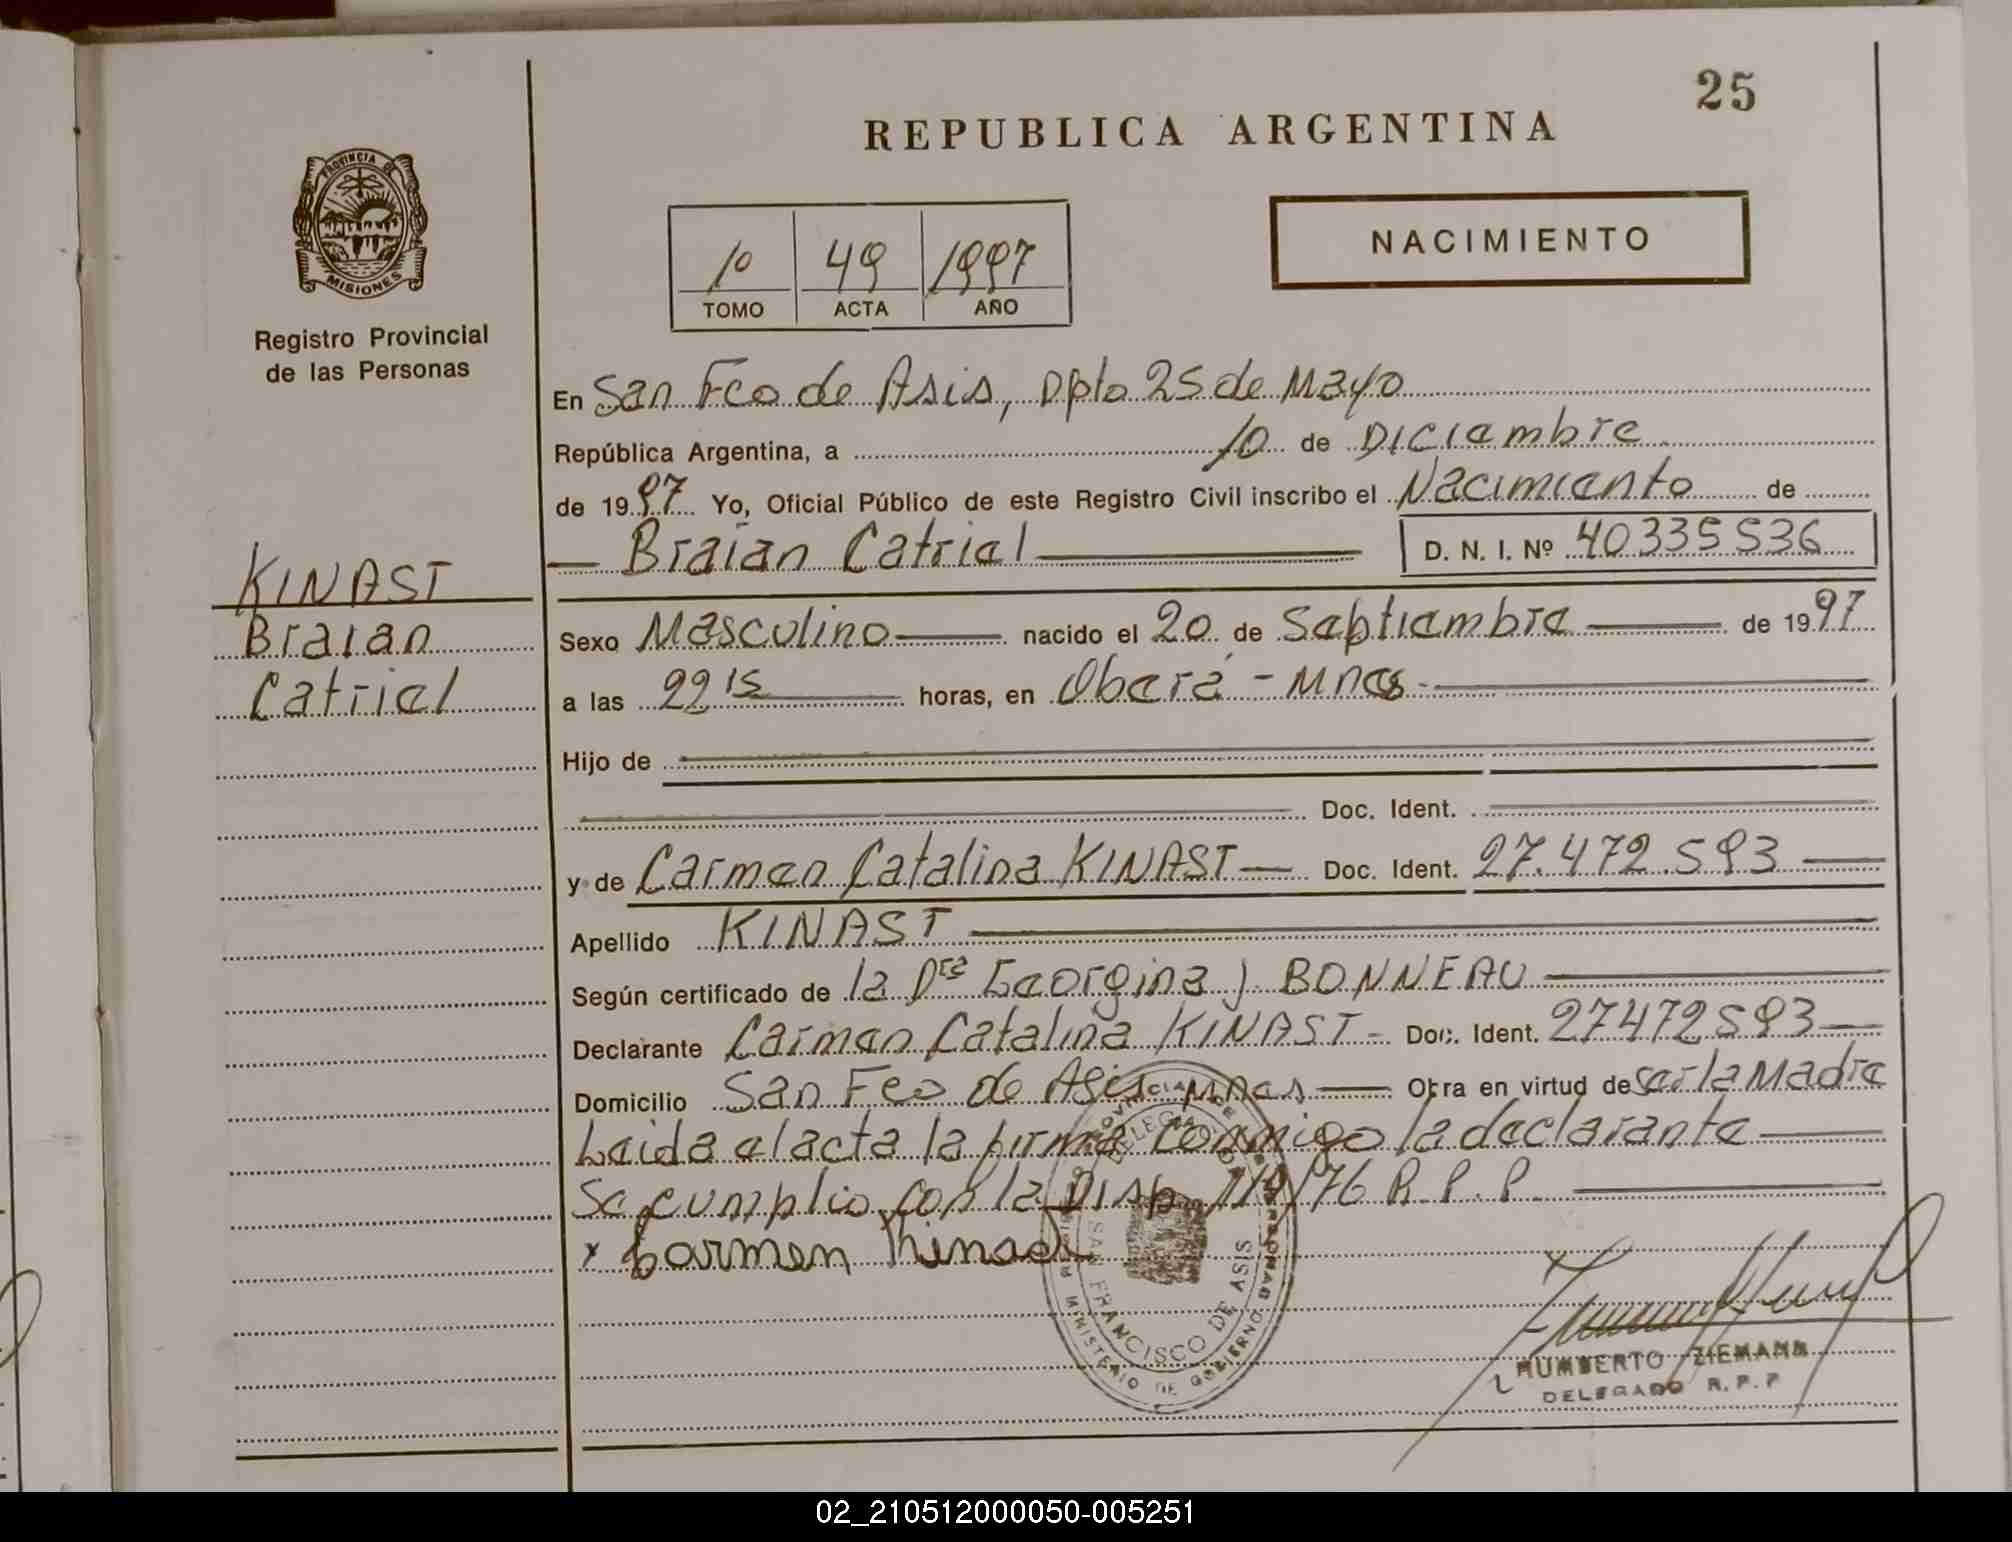 25
REPUBLICA ARGENTINA
PROVINCIA DE
MISIONES
Registro Provincial
de las Personas
1º 49 1997
TOMO ACTA AÑO
NACIMIENTO
En San Fco de Asis, Dpto 25 de Mayo
República Argentina, a 10 de Diciembre
de 1997 Yo, Oficial Público de este Registro Civil inscribo el Nacimiento de
Braian Catriel D. N. I. Nº 40335536
KINAST
Braian
Catriel
Sexo Masculino nacido el 20 de Septiembre de 1997
a las 22 15 horas, en Oberá - Mnes
Hijo de
Doc. Ident.
y de Carmen Catalina KINAST Doc. Ident. 27.472.593
Apellido KINAST
Según certificado de la Dra Georgina J BONNEAU
Declarante Carmen Catalina KINAST - Doc. Ident. 27472593
Domicilio San Fco de Asis Mnes Obra en virtud de ser la Madre
Leida el acta la firma conmigo la declarante
Se cumplio con la Disp 119/76 R.P.P.
x Carmen Kinast
SAN FRANCISCO DE ASIS
MINISTERIO DE GOBIERNO
HUMBERTO ZIEMANN
DELEGADO R.P.P
02_210512000050-005251